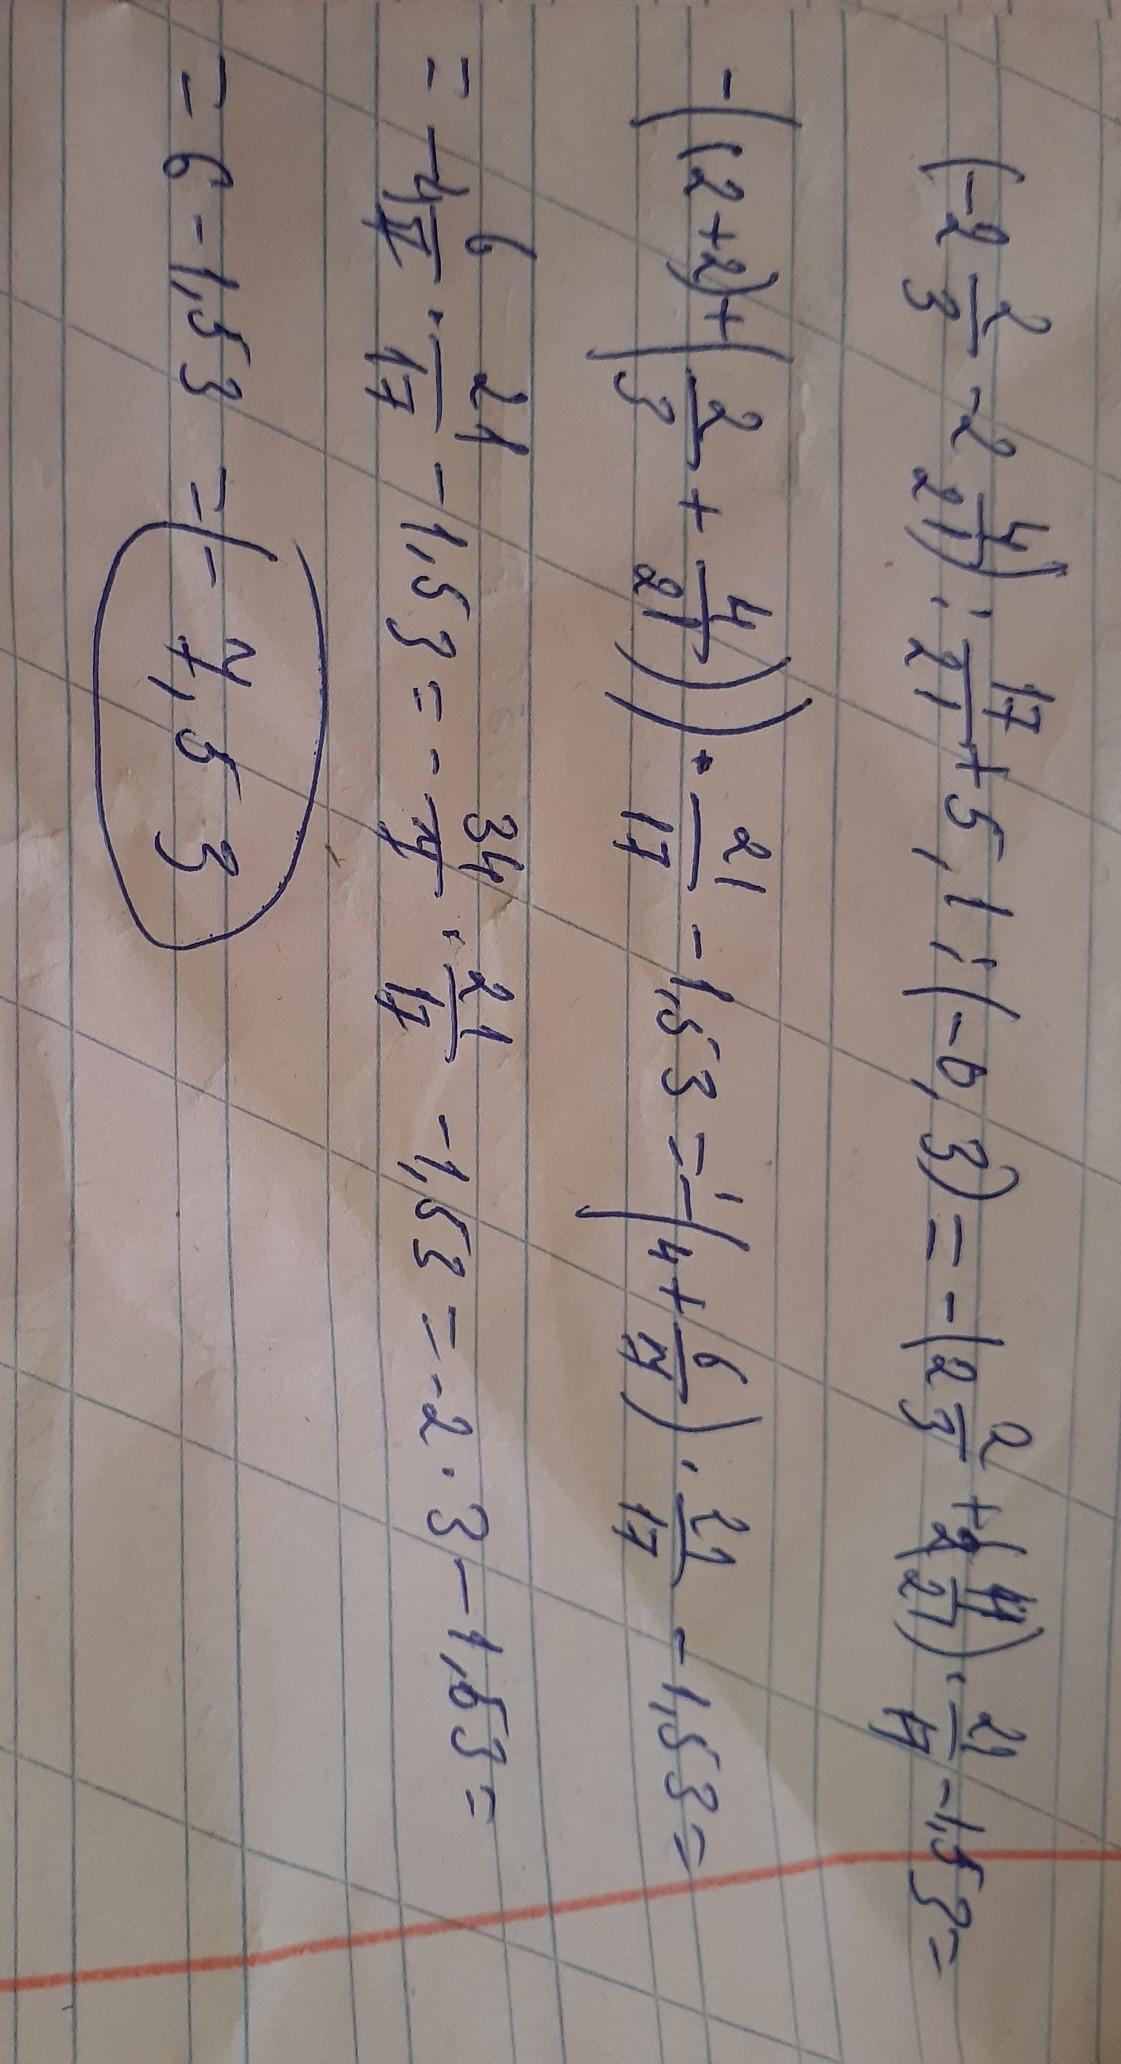 (-2 2/3 - 2 4/21) : 17/21 + 5,1 : (-0,3) = -(2 2/3 + 2 4/21) · 21/17 - 1,53 =
-((2+2) + (2/3 + 4/21)) · 21/17 - 1,53 = -(4 + 6/7) · 21/17 - 1,53 =
= -4 6/7 · 21/17 - 1,53 = - 34/7 · 21/17 - 1,53 = -2 · 3 - 1,53 =
= 6 - 1,53 = - 7,53